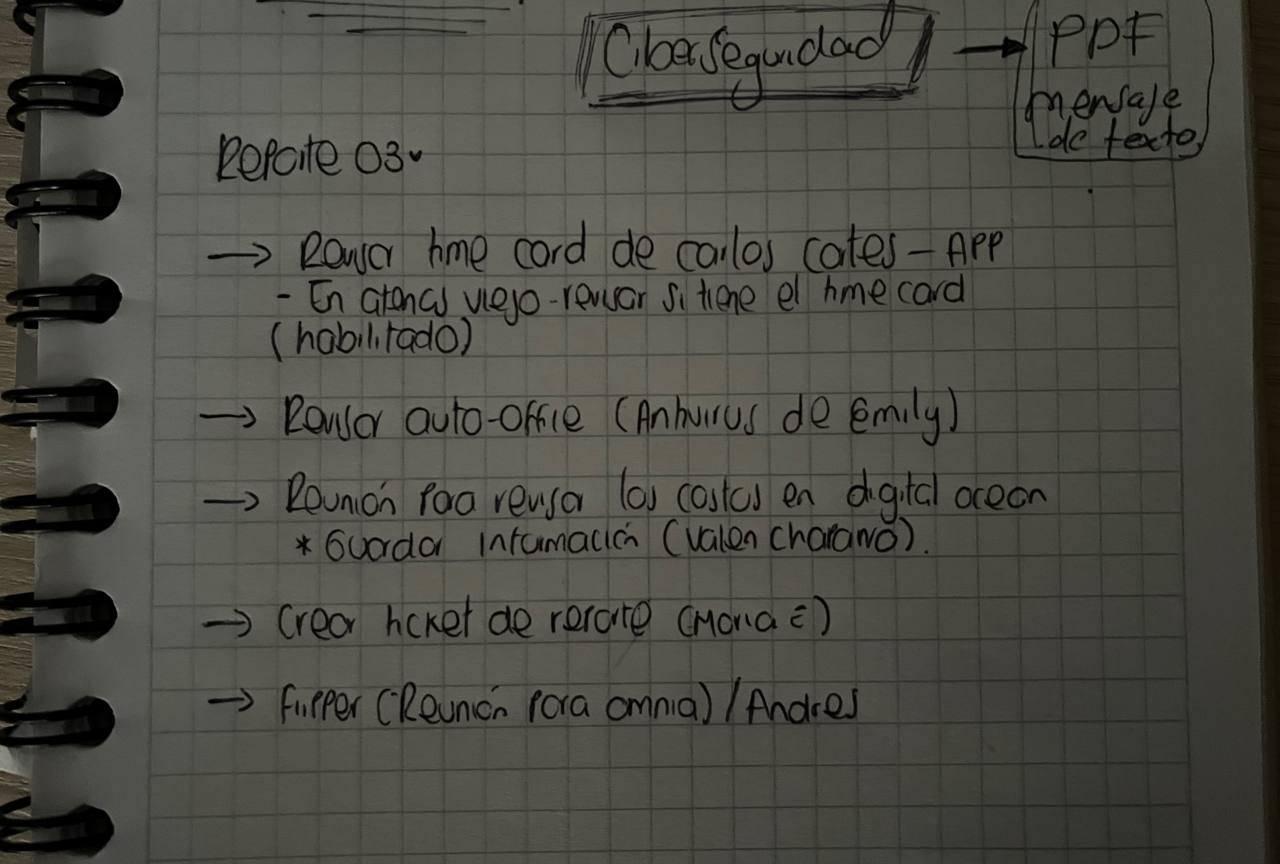 Ciberseguridad → PDF
mensaje
de texto
Reporte 03
→ Revisar time card de carlos cortes - APP
- En atenas viejo - revisar si tiene el time card
(habilitado)
→ Revisar auto-office (Antivirus de Emily)
→ Reunión para revisar los costos en digital ocean
* Guardar información (Valen).
→ Crear ticket de reporte (Maria E)
→ Flipper (Reunión para omnia) / Andres